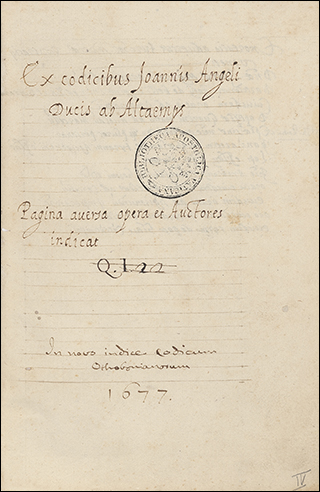 Ex codicibus Joannis Angeli
Ducis ab Altaemps
BIBLIOTHECA APOSTOLICA VATICANA
Pagina aversa opera et Auctores
indicat
Q. I. 22
In novo indice Codicum
Ottobonianorum
1677.
IV